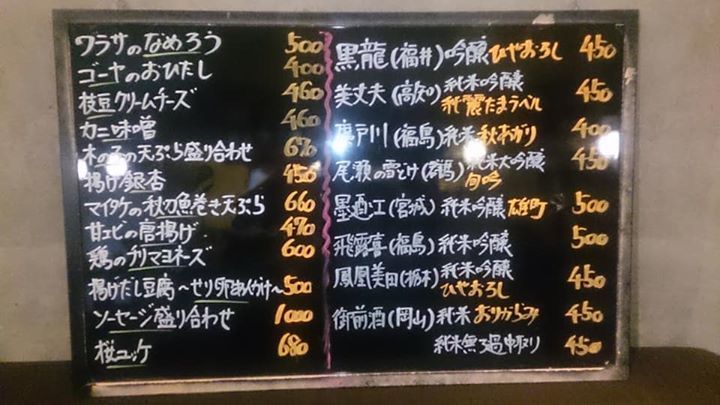 ワラサのなめろう 500
ゴーヤのおひたし 400
枝豆クリームチーズ 460
カニ味噌 460
木の子の天ぷら盛り合わせ 670
揚げ銀杏 450
マイタケの秋刀魚巻き天ぷら 660
甘エビの唐揚げ 470
鶏のチリマヨネーズ 600
揚げだし豆腐〜せり卵あんかけ〜 500
ソーセージ盛り合わせ 1000
桜ユッケ 680
黒龍(福井)吟醸ひやおろし 450
美丈夫(高知)純米吟醸 純麗たまラベル 450
廣戸川(福島)純米秋あがり 400
尾瀬の雪どけ(群馬)純米大吟醸 旬吟 450
墨廼江(宮城)純米吟醸 雄町 500
飛露喜(福島)純米吟醸 500
鳳凰美田(栃木)純米吟醸 ひやおろし 450
御前酒(岡山)純米 おりがらみ 450
純米無ろ過中取り 450